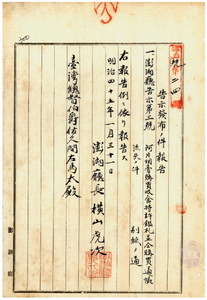 告示發布ノ件報告
一、澎湖廳告示第三號
阿片煙膏購買吸食特許鑑札並全購買通帳
流失ノ件
別紙ノ通
右報告例ニ依リ報告ス
明治四十五年一月三十一日
澎湖廳長 橫山虎次
臺灣總督伯爵佐久間左馬太殿